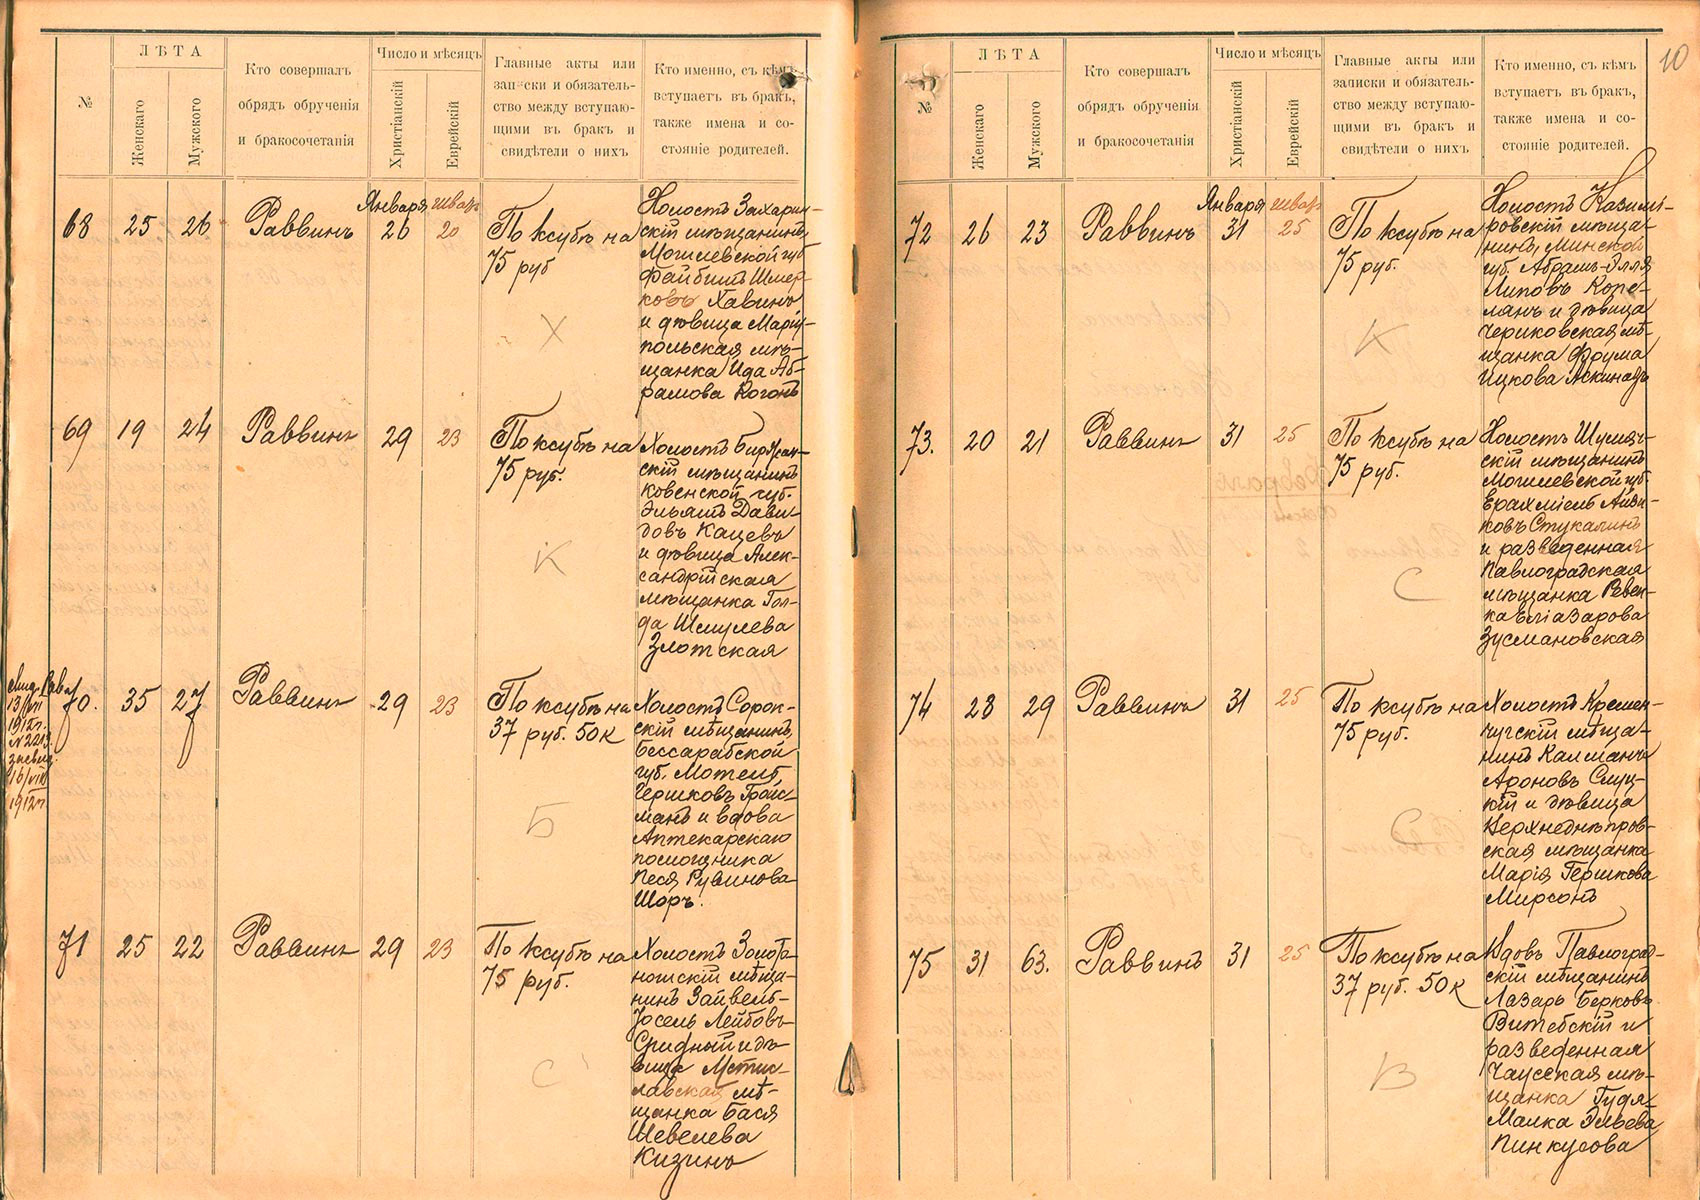 ЛѢТА
Число и мѣсяцъ
№
Женскаго
Мужского
Кто совершалъ
обрядъ обрученія
и бракосочетанія
Христіанскій
Еврейскій
Главные акты или
записки и обязатель-
ство между вступаю-
щими въ бракъ и
свидѣтели о нихъ
Кто именно, съ кѣмъ
вступаетъ въ бракъ,
также имена и со-
стояніе родителей.
68
25
26
Раввинъ
Января
26
шват
20
По ксубѣ на
75 руб
Холостъ Захарин-
скій мѣщанинъ,
Могилевской губ
Файбишъ Шмер-
ковъ Хавинъ
и дѣвица Маріу-
польская мѣ-
щанка Ида Аб-
рамова Коганъ
Х
69
19
24
Раввинъ
29
23
По ксубѣ на
75 руб.
Холостъ Биржан-
скій мѣщанинъ
Ковенской губ.
Эльяшъ Дави-
довъ Кацевъ
и дѣвица Алек-
сандрійская
мѣщанка Гол-
да Шмулева
Злотская
К
13/VII
1912г.
16/VIII
1912г
70.
35
27
Раввинъ
29
23
По ксубѣ на
37 руб. 50к
Холостъ Сорок-
скій мѣщанинъ,
Бессарабской
губ. Мотель
Гершковъ Гройс-
манъ и вдова
Аптекарскаго
помощника
Песя Рувинова
Шоръ.
Б
71
25
22
Раввинъ
29
23
По ксубѣ на
75 руб.
Холостъ Золота-
ношскій мѣща-
нинъ Зайвель-
Іосель Лейбовъ
и дѣ-
вица Мстис-
лавская мѣ-
щанка Бася
Шевелева
Кизинъ
С
10
ЛѢТА
Число и мѣсяцъ
№
Женскаго
Мужского
Кто совершалъ
обрядъ обрученія
и бракосочетанія
Христіанскій
Еврейскій
Главные акты или
записки и обязатель-
ство между вступаю-
щими въ бракъ и
свидѣтели о нихъ
Кто именно, съ кѣмъ
вступаетъ въ бракъ,
также имена и со-
стояніе родителей.
72
26
23
Раввинъ
Января
31
шват
25
По ксубѣ на
75 руб.
Холостъ Казими-
ровскій мѣща-
нинъ, Минской
губ. Абрамъ-Элля
Липовъ Копе-
лянъ и дѣвица
Чериковская мѣ-
щанка Фрума
Ицкова Аскинадзъ
К
73.
20
21
Раввинъ
31
25
По ксубѣ на
75 руб.
Холостъ Шумяч-
скій мѣщанинъ
Могилевской губ.
Ерахміель Айзи-
ковъ Стукалинъ
и разведенная
Павлоградская
мѣщанка Ревек-
ка Еліазарова
Зусмановская
С
74
28
29
Раввинъ
31
25
По ксубѣ на
75 руб.
Холостъ Кремен-
чугскій мѣща-
нинъ Калманъ
Ароновъ Слуц-
кій и дѣвица
Верхнеднѣпров-
ская мѣщанка
Марія Гершкова
Мирсонъ
С
75
31
63.
Раввинъ
31
25
По ксубѣ на
37 руб. 50к
Вдовъ Павлоград-
скій мѣщанинъ
Лазарь Берковъ
Витебскій и
разведенная
Чаусская мѣ-
щанка Гудя-
Малка Эльева
Пинкусова
В